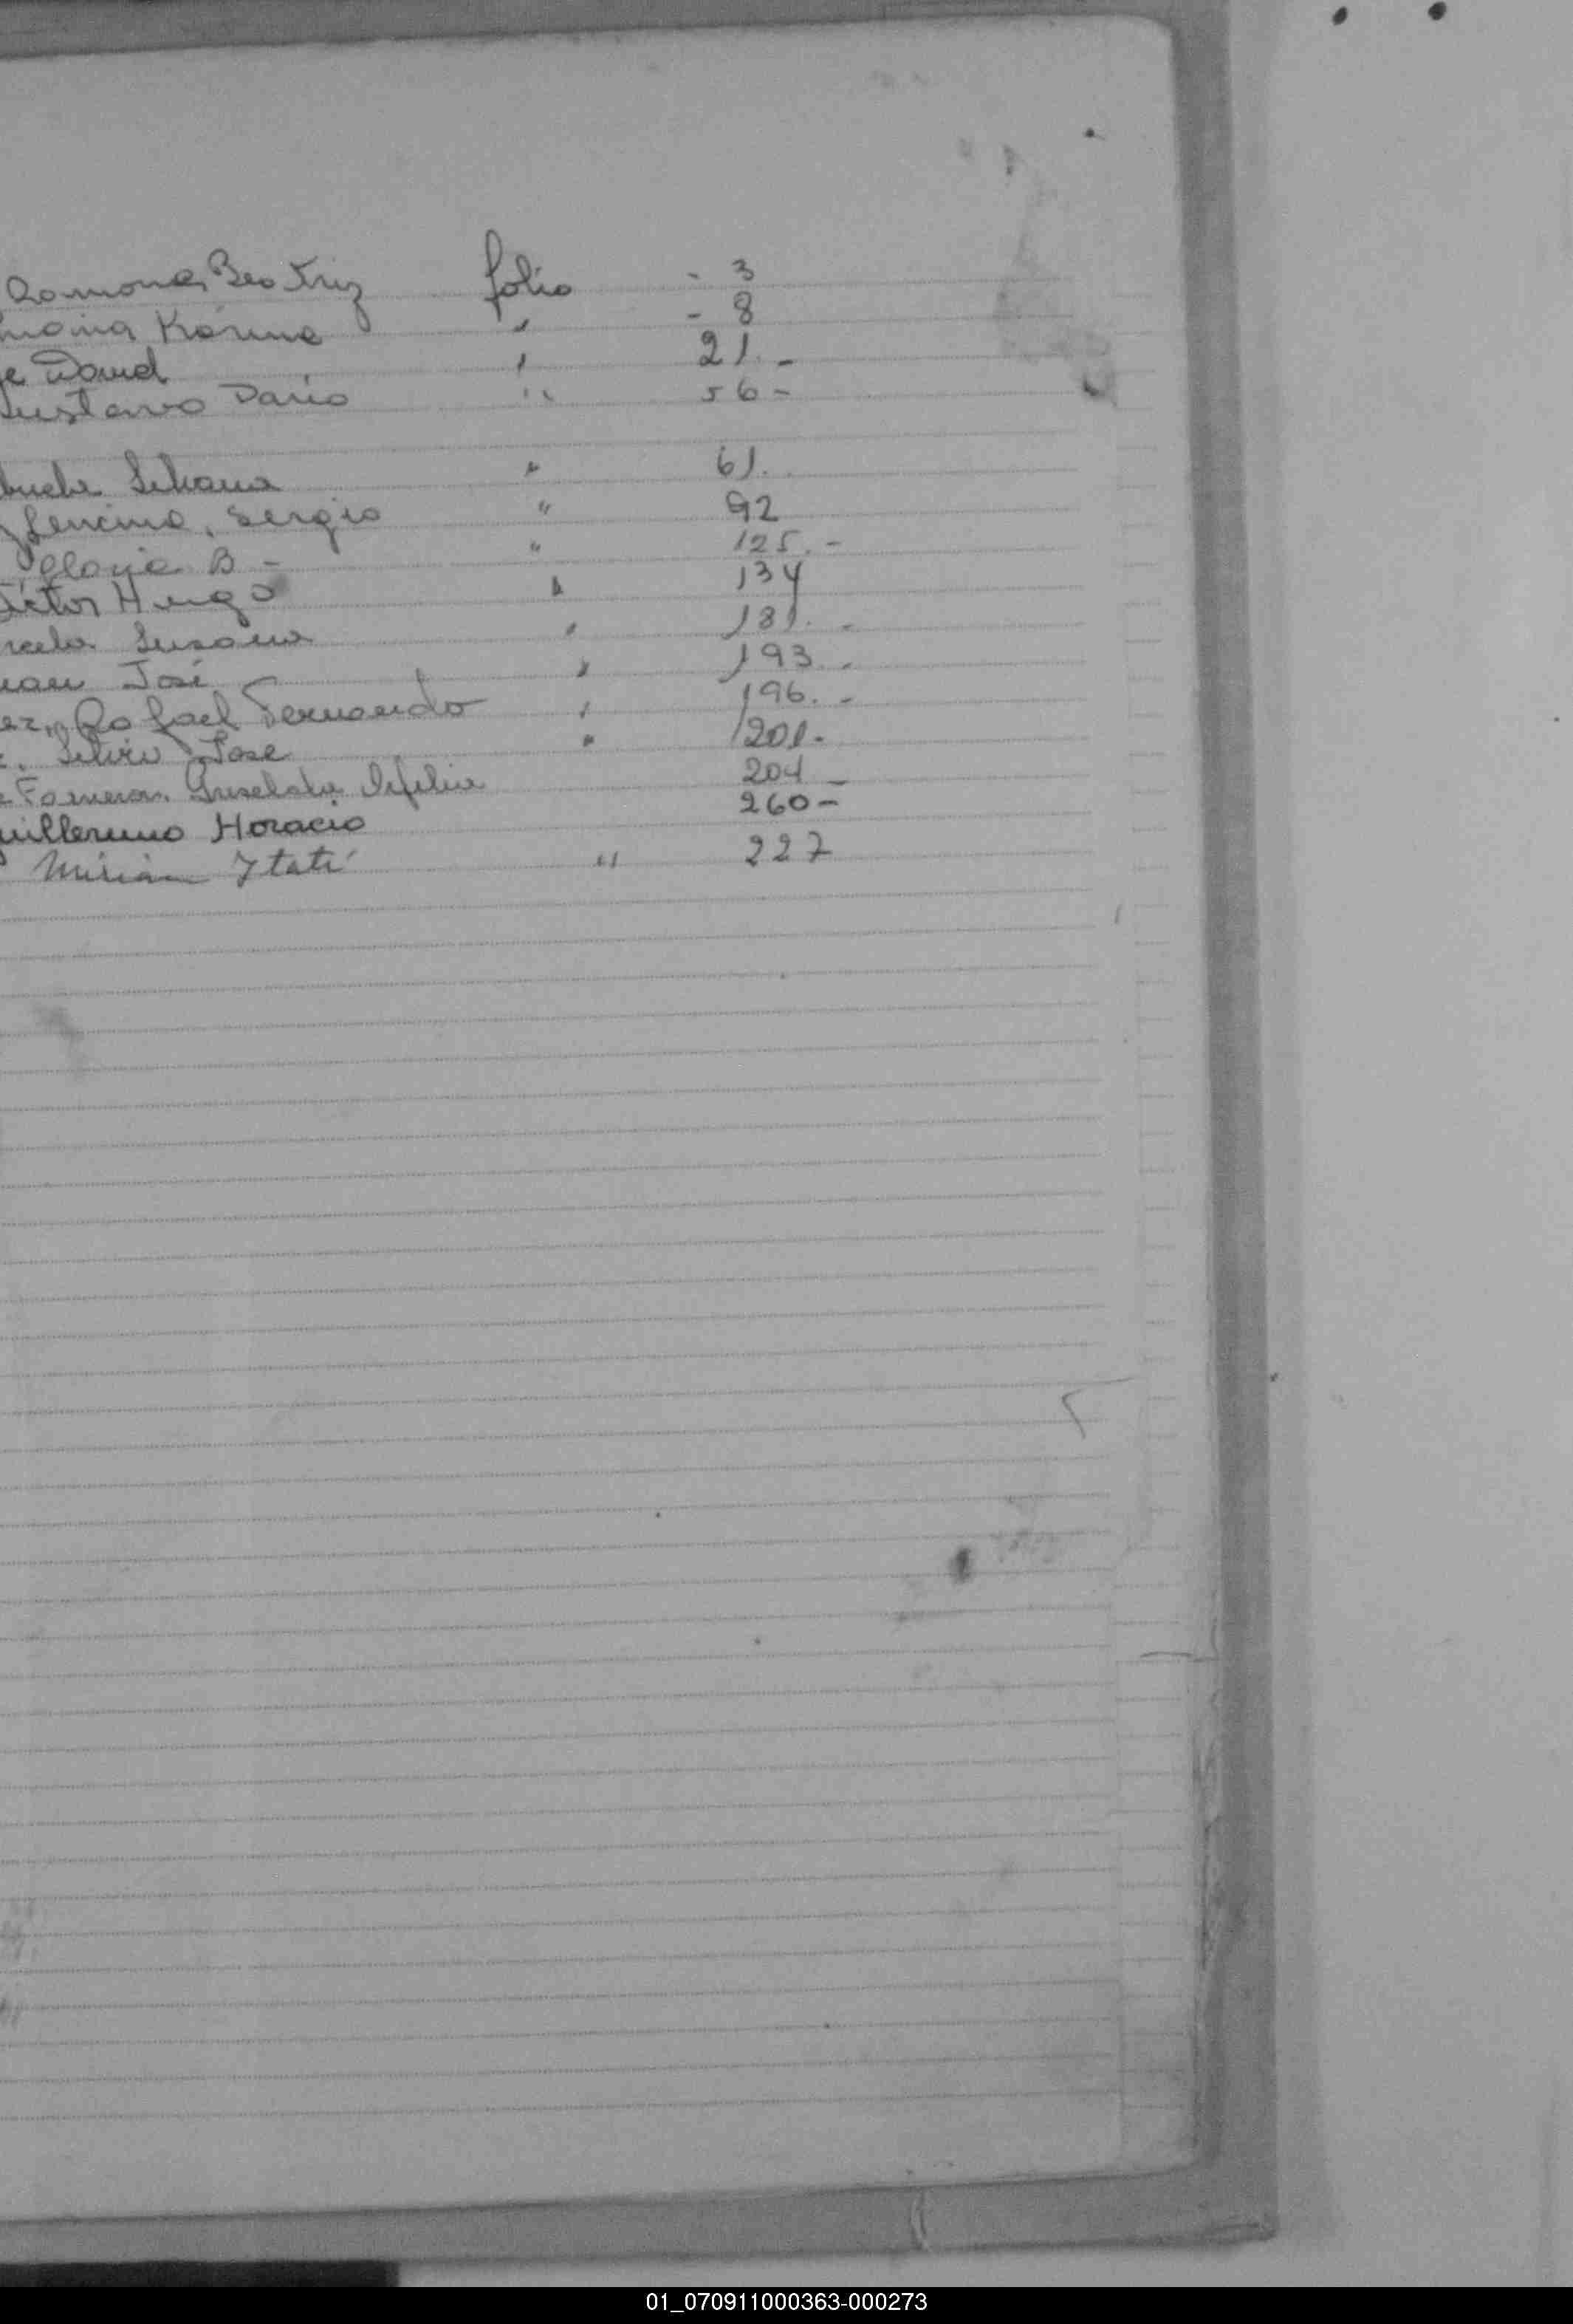 Ramona, Beatriz folio - 3
Karina " - 8
e David " 21. -
ustavo Dario " 56 -
Liliana " 61.
Lencina, Sergio " 92
B - " 125. -
íctor Hugo " 134
rcela Susana " 181. -
uan José " 193. -
ez, Rafael Fernando " 196. -
Silvio José " 201. -
204 -
uillermo Horacio 260 -
Mirian Ytatí " 227
01_070911000363-000273